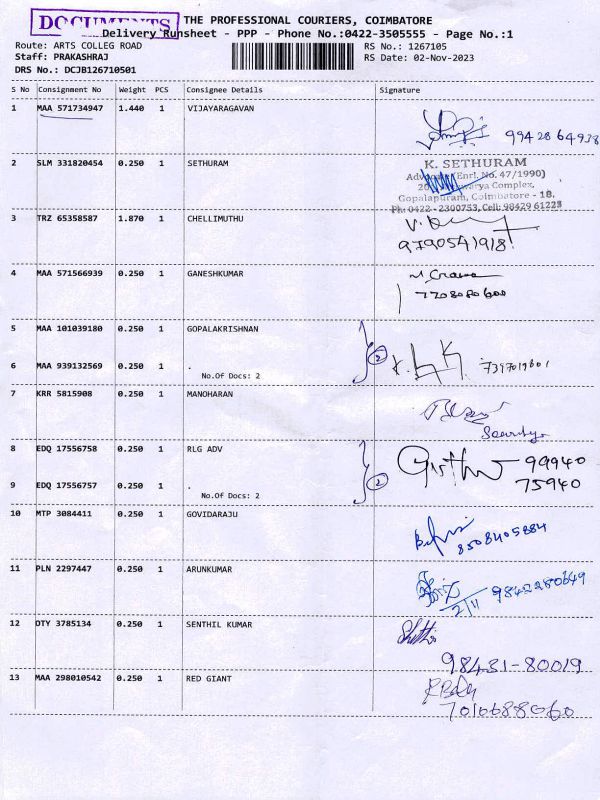 DOCUMENTS
THE PROFESSIONAL COURIERS, COIMBATORE
Delivery Runsheet - PPP - Phone No.:0422-3505555 - Page No.:1
Route: ARTS COLLEG ROAD
RS No.: 1267105
Staff: PRAKASHRAJ
RS Date: 02-Nov-2023
DRS No.: DCJB126710501
S No Consignment No Weight PCS Consignee Details Signature
1 MAA 571734947 1.440 1 VIJAYARAGAVAN
99428 64938
2 SLM 331820454 0.250 1 SETHURAM
K. SETHURAM
Advocate (Enrl. No. 47/1990)
Complex,
Gopalapuram, Coimbatore - 18.
Ph: 0422 - 2300753, Cell: 98429 61223
3 TRZ 65358587 1.870 1 CHELLIMUTHU
9790541918
4 MAA 571566939 0.250 1 GANESHKUMAR
7708080600
5 MAA 101039180 0.250 1 GOPALAKRISHNAN
2
6 MAA 939132569 0.250 1 .
7397019801
No.Of Docs: 2
7 KRR 5815908 0.250 1 MANOHARAN
Security
8 EDQ 17556758 0.250 1 RLG ADV
99940
75940
9 EDQ 17556757 0.250 1 .
2
No.Of Docs: 2
10 MTP 3084411 0.250 1 GOVIDARAJU
8508405884
11 PLN 2297447 0.250 1 ARUNKUMAR
9842280649
2/11
12 OTY 3785134 0.250 1 SENTHIL KUMAR
98431-80019
13 MAA 298010542 0.250 1 RED GIANT
7010688060